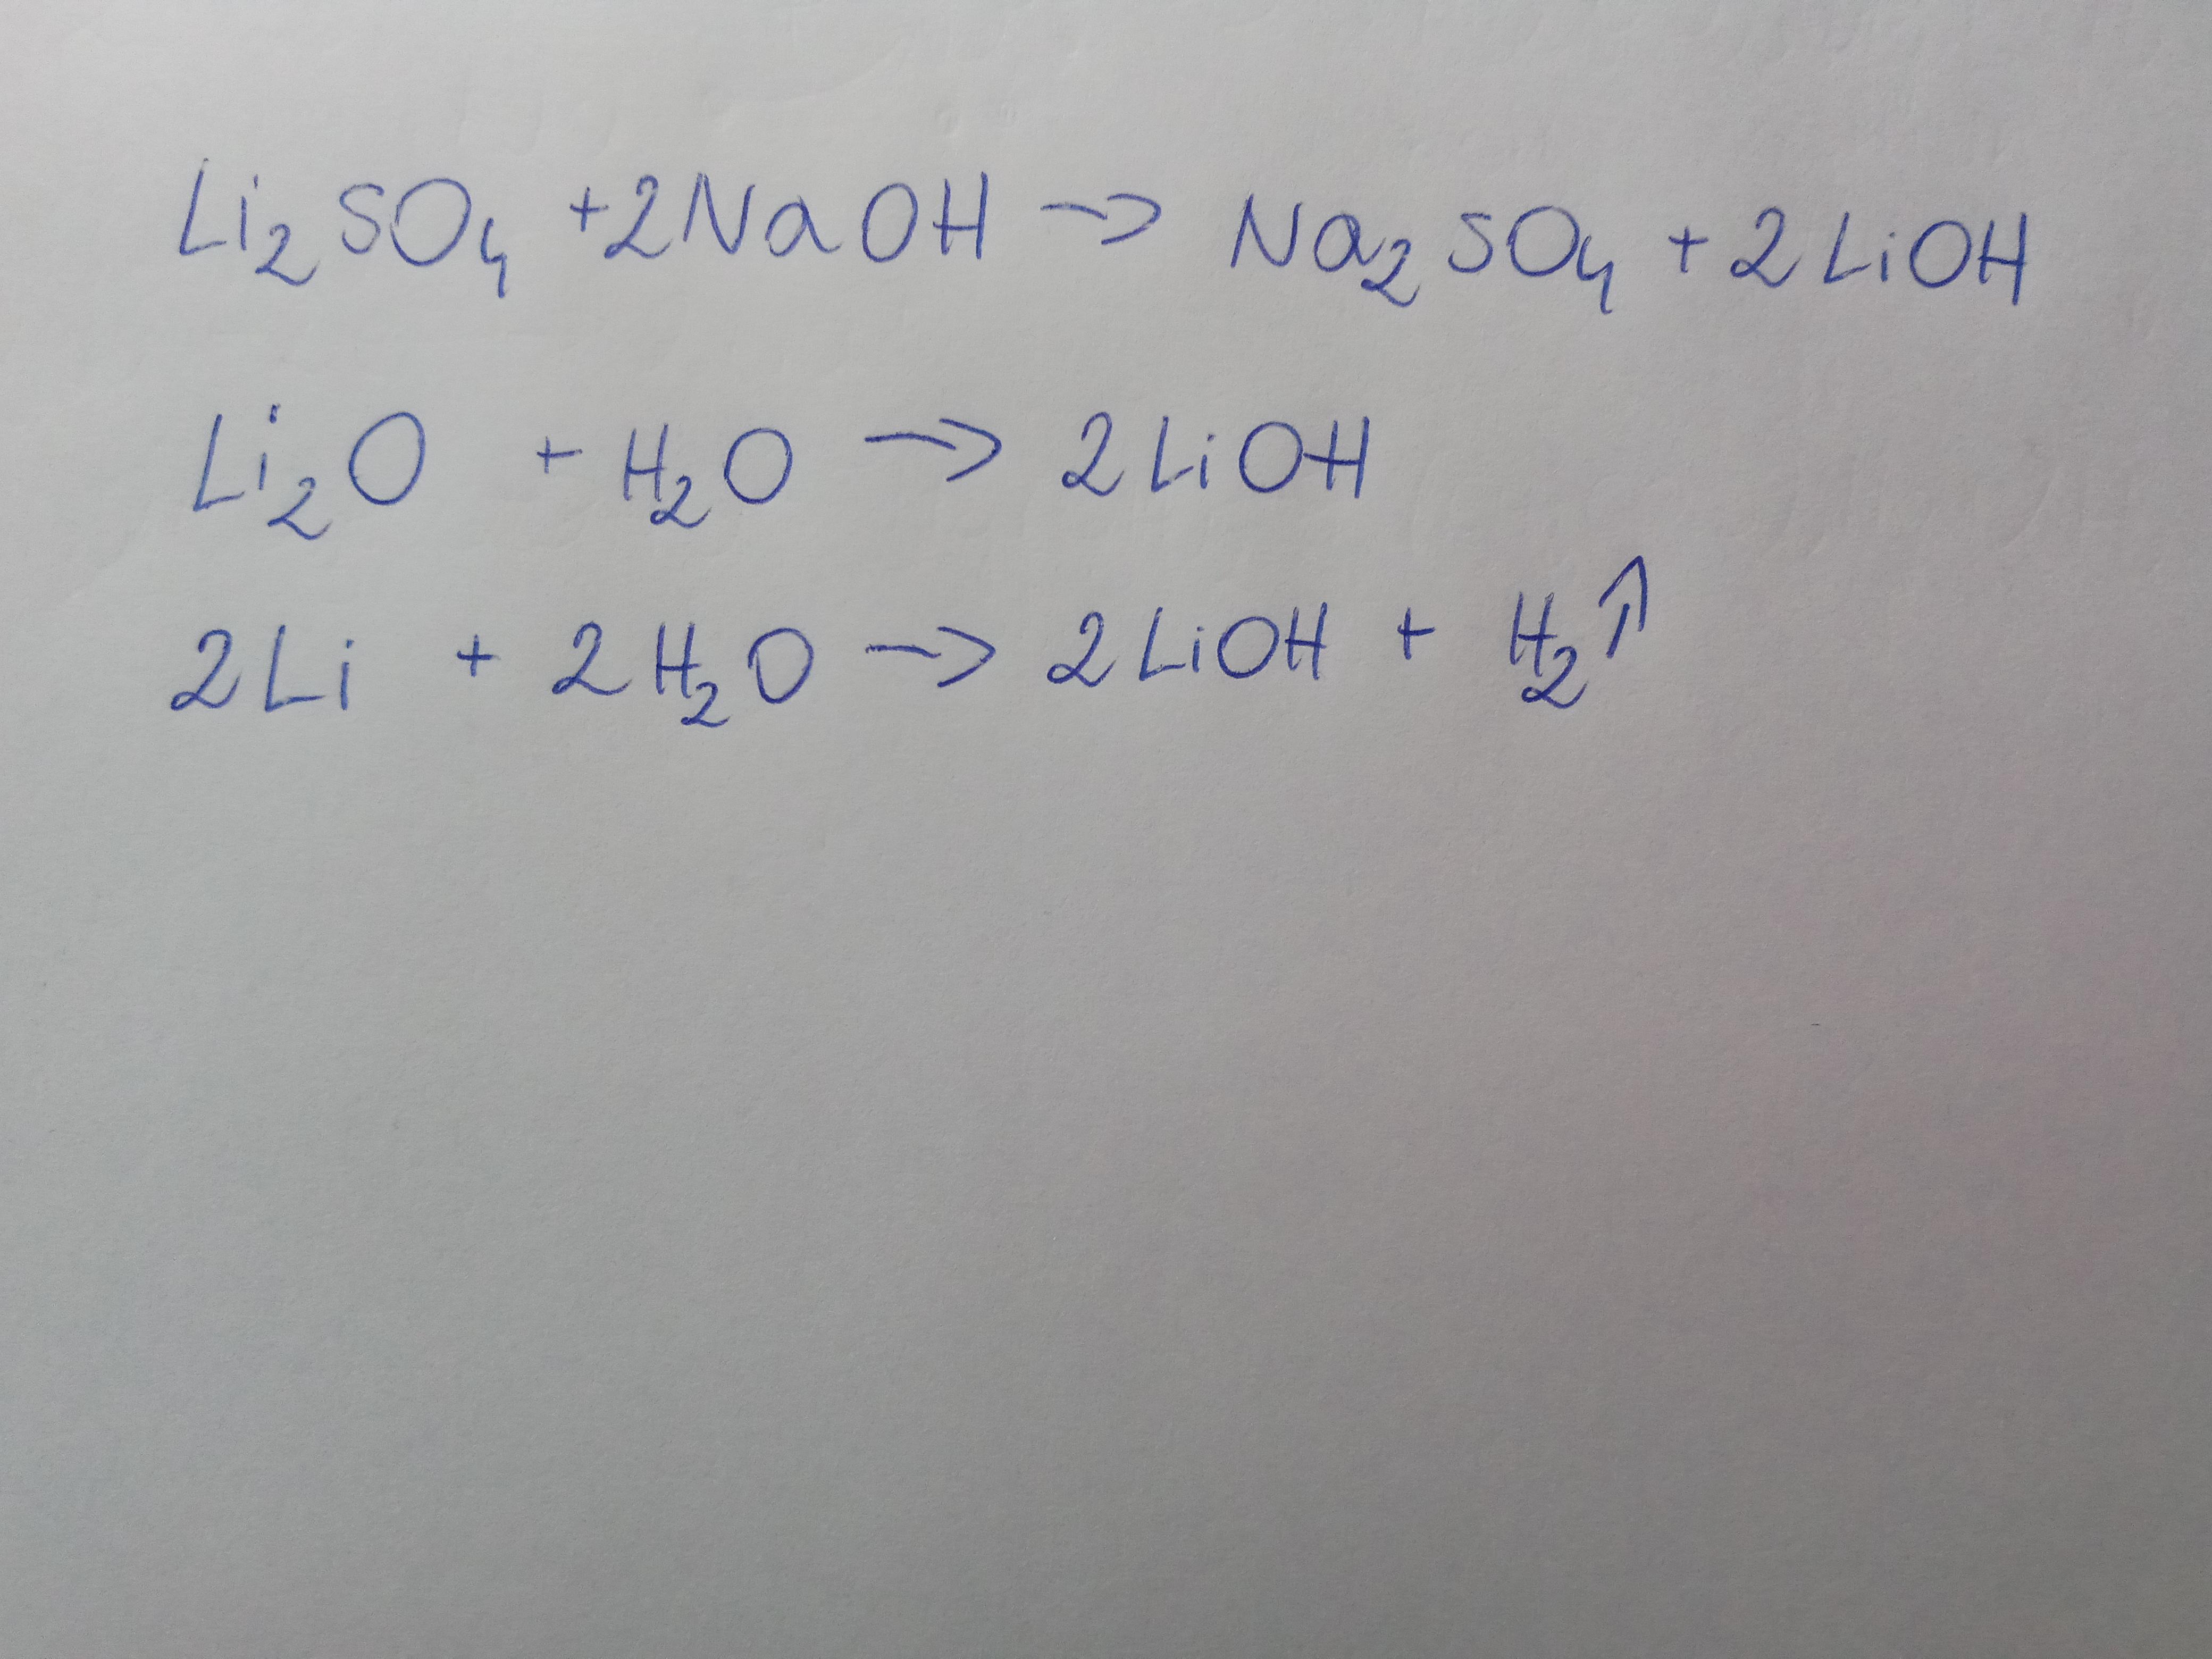 Li₂SO₄ +2NaOH → Na₂SO₄ + 2LiOH
Li₂O + H₂O → 2LiOH
2Li + 2H₂O → 2LiOH + H₂↑